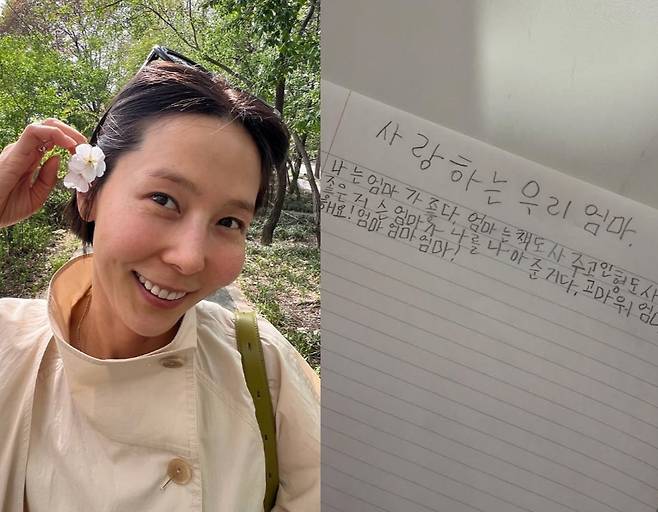 사랑하는 우리 엄마.
나는 엄마가 조다. 엄마는 책도 사 주고 인형도 사
엄마가 나를 나아 준거다, 고마워 엄
해요! 엄마 엄마 엄마!